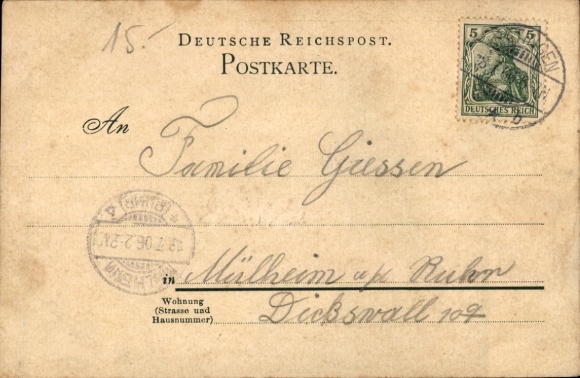 15.-
DEUTSCHE REICHSPOST.
POSTKARTE.
5 5
DEUTSCHES REICH
An
Familie Giessen
(RUHR)
7.06.2-3
MÜLHEIM
in Mülheim a/ Ruhr
Wohnung
(Strasse und
Hausnummer)
Dickswall 107